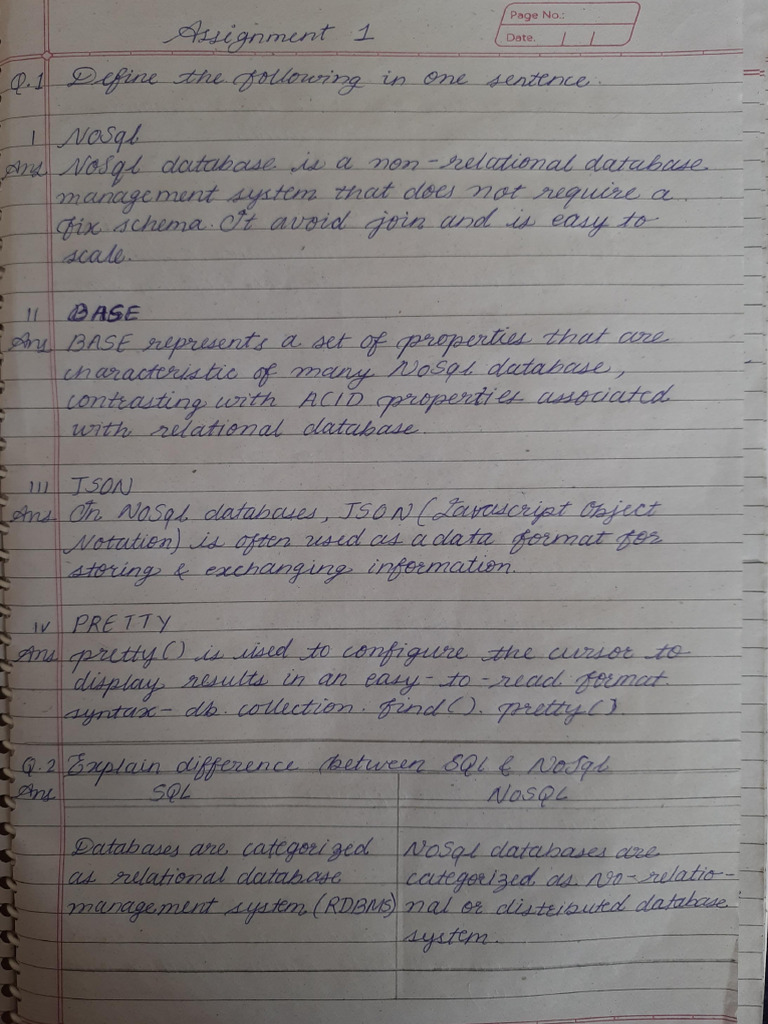 Assignment 1
Page No.:
Date. / /
Q.1 Define the following in one sentence.
I NoSql
Ans NoSql database is a non-relational database
management system that does not require a
fix schema. It avoid join and is easy to
scale.
II BASE
Ans BASE represents a set of properties that are
characteristic of many NoSql database,
contrasting with ACID properties associated
with relational database.
III JSON
Ans In NoSql databases, JSON (Javascript Object
Notation) is often used as a data format for
storing & exchanging information.
IV PRETTY
Ans pretty() is used to configure the cursor to
display results in an easy-to-read format.
syntax- db. collection. find(). pretty().
Q.2 Explain difference between SQL & NoSql
Ans SQL NoSQL
Databases are categorized NoSql databases are
as relational database categorized as No-relatio-
management system (RDBMS) nal or distributed database
system.